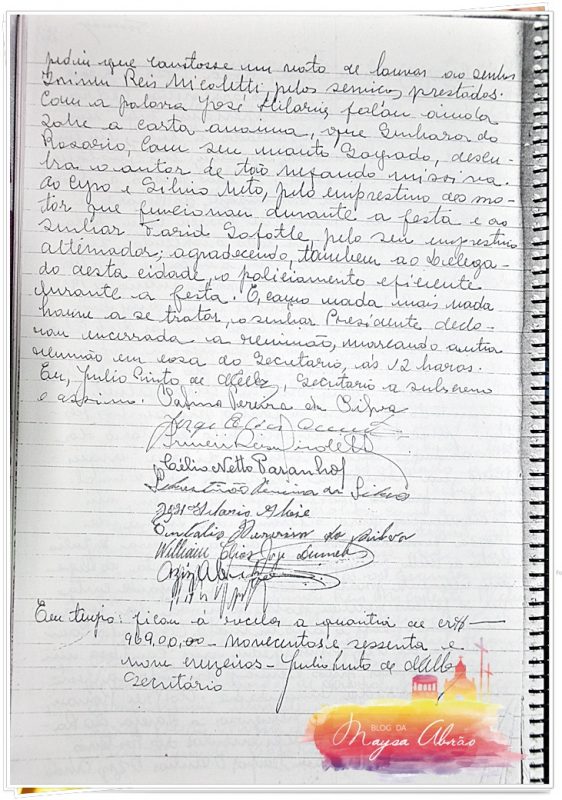 pediu que constasse um voto de louvor ao senhor
Irineu Reis Nicoletti, pelos serviços prestados.
Com a palavra José Hilario, falou ainda
sobre a carta anonima, que Senhora do
Rosario, com seu manto Sagrado, descu-
bra o autor de tão nefando missiva.
Ao Cyro e Silvio Neto, pelo emprestimo do mo-
tor que funcionou durante a festa e ao
senhor Farid pelo seu emprestimo
alternador; agradecendo, tambem ao Delega-
do desta cidade, o policiamento eficiente
durante a festa. E, como nada mais nada
houve a se tratar, o senhor Presidente decla-
rou encerrada a reunião, marcando outra
reunião em casa do Secretario, ás 12 horas.
Eu, Julio Pinto de Mello, Secretario a subscrevo
e assino. Pereira da Silva
Jorge
Irineu Reis Nicoletti
Célio Netto Paranhos
Sebastião Pereira da Silva
José Hilario
da Silva
William Elias José
Em tempo: ficou á receber a quantia de cr$ —
969,00,00 — novecentos e sessenta e
nove cruzeiros — Julio Pinto de Mello
Secretário
BLOG DA
Maysa Abrão